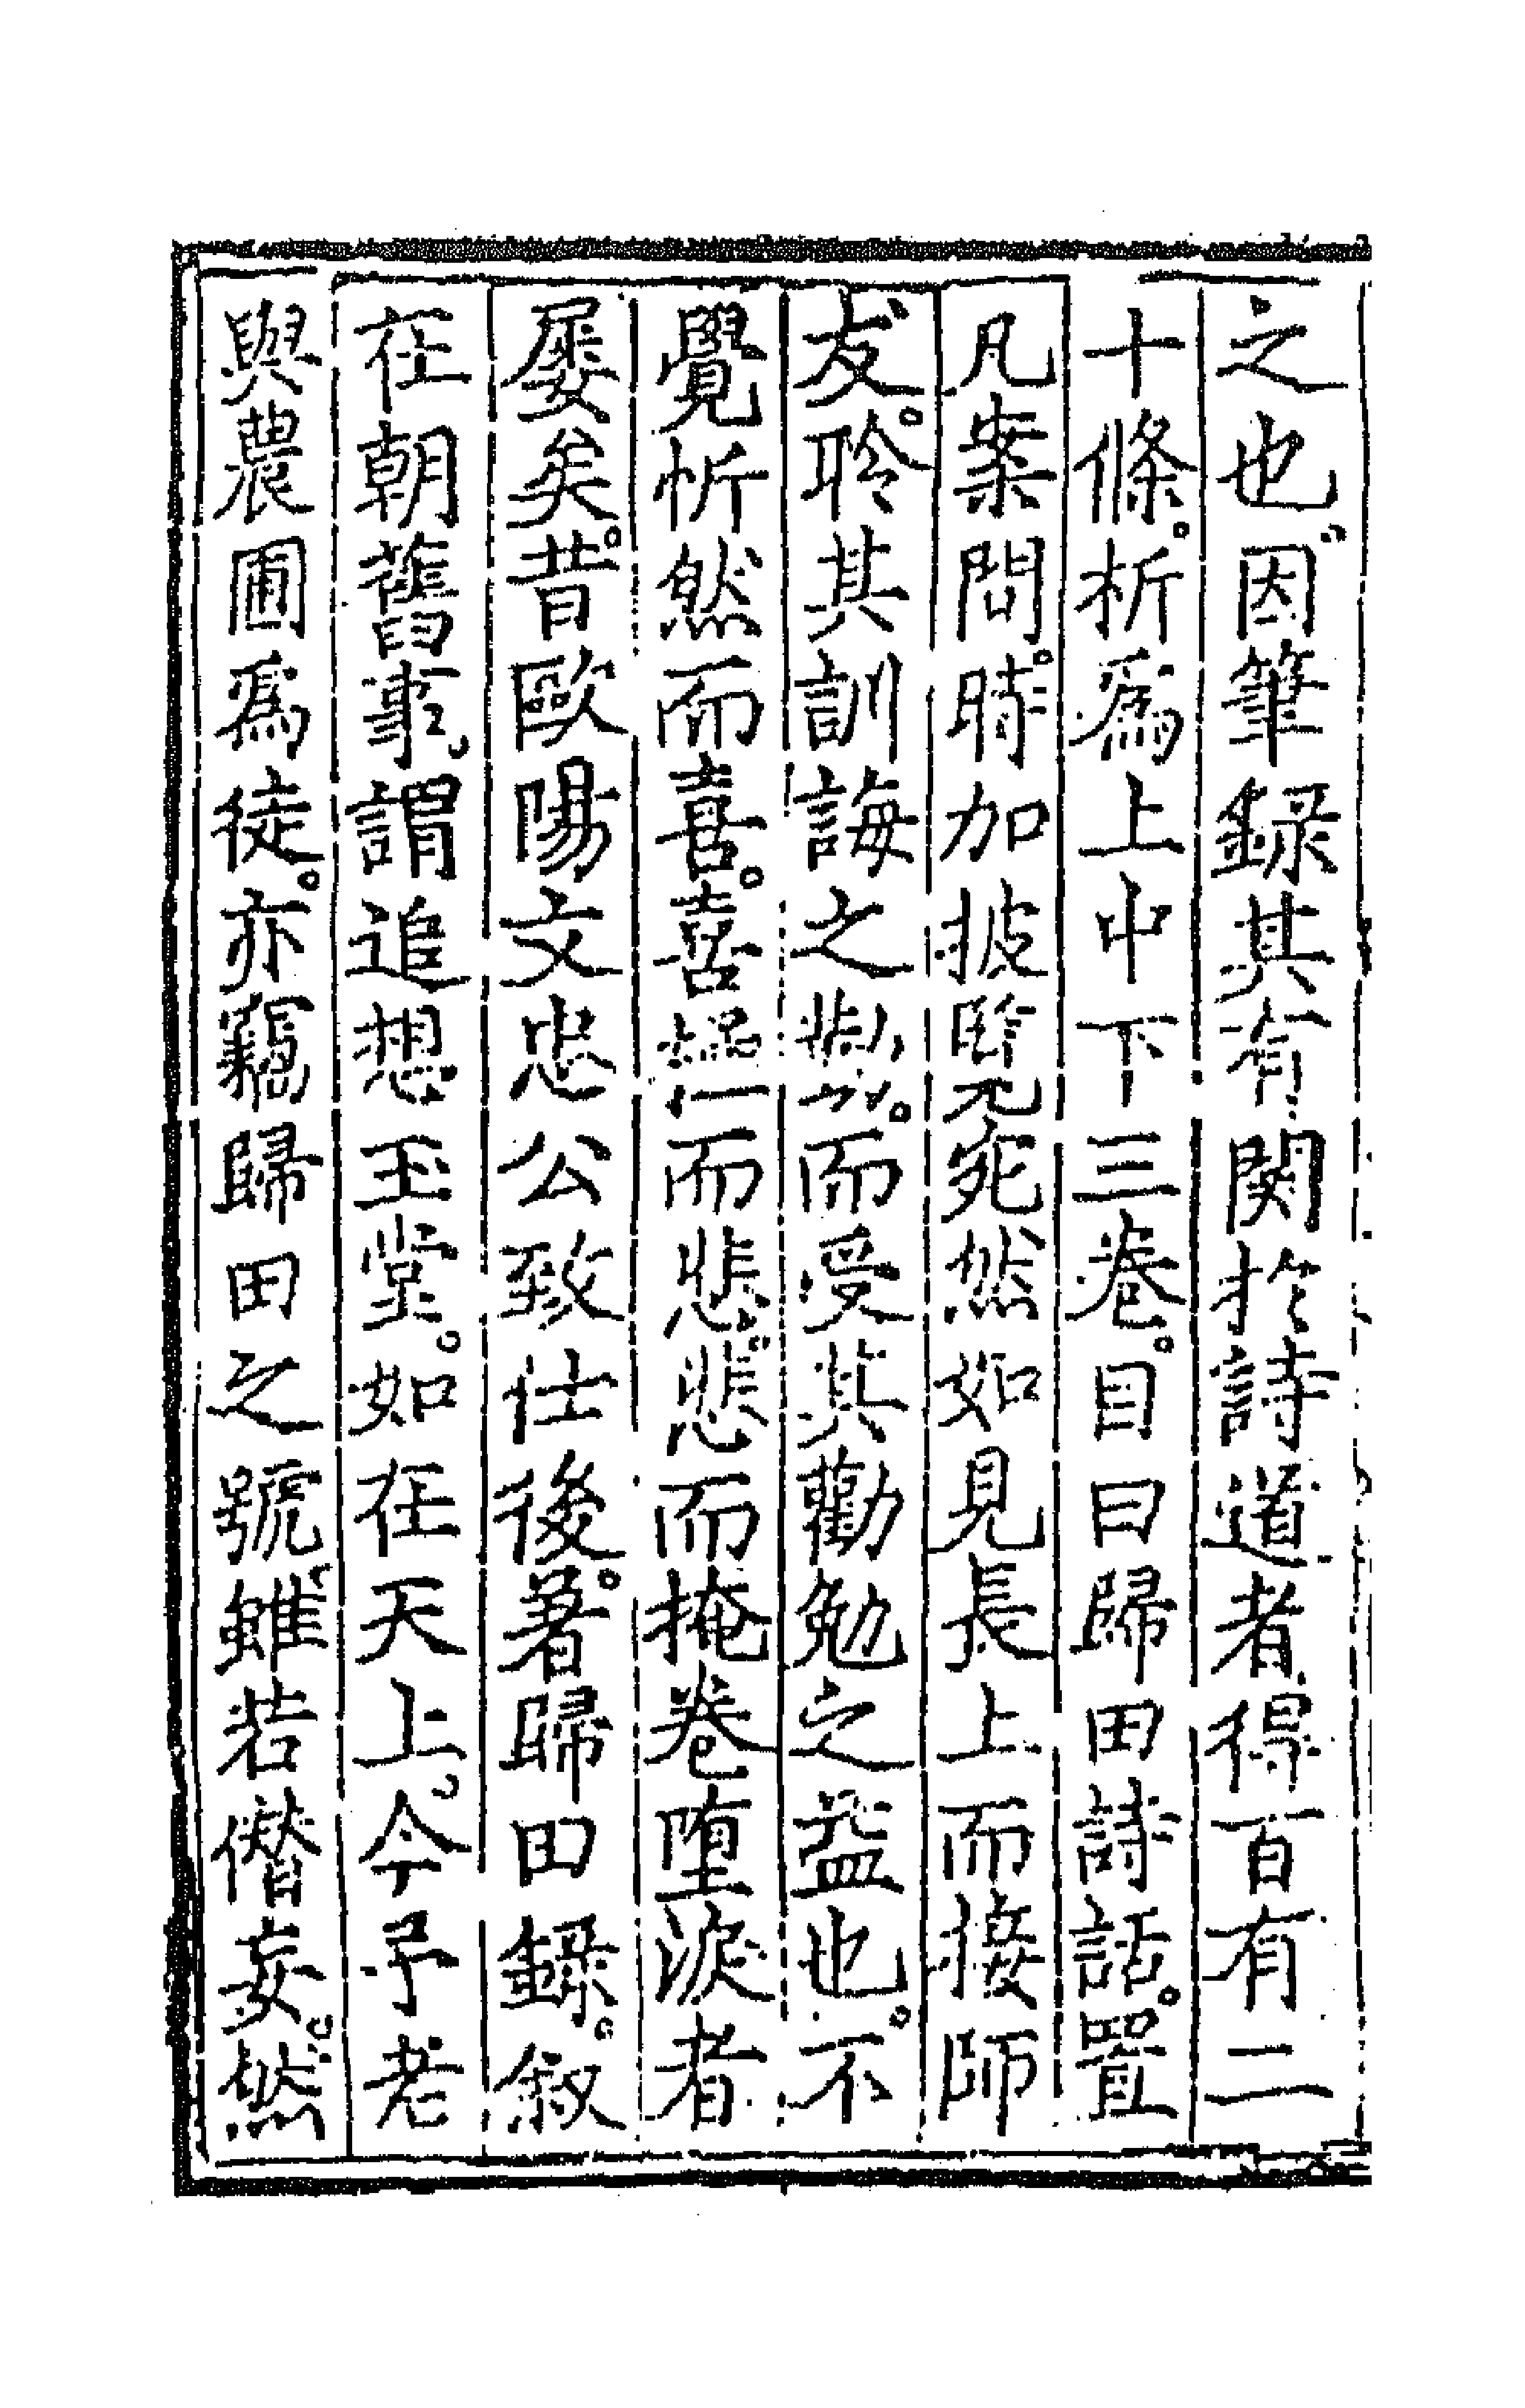 之也。因筆錄其有関於詩道者得百有二
十條。析爲上中下三卷。目曰歸田詩話。置
凡案間。時加披覽宛然如見長上而接師
友。聆其訓誨之而受其勸勉之益也。不
覺忻然而喜。喜而悲。悲而掩卷墮淚者
屢矣。昔歐陽文忠公致仕後。著歸田錄。叙
在朝舊事。謂追想玉堂。如在天上。今予老
與農圃爲徒。亦竊歸田之號。雖若僭妄。然